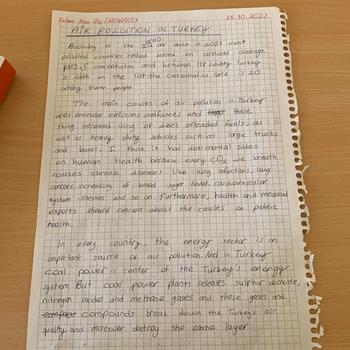 23.10.2022
AIR POLLUTION IN TURKEY
According to the WHO air data in 2021 most
polluted countries ranked based on annual average
PM2.5 concentration and between 118 country Turkey
is 46th on the list the concentration is 20
among people.
The main causes of air pollution in Turkey
are vehicular emissions and these
thing because using of diesel unleaded fuels, as
well as heavy duty vehicles such as large trucks
and buses. I think it has detrimental sides
on human health because every CO2 we breath
causes chronic diseases like lung infections, lung
cancer, increasing of blood sugar level, cardiovascular
system illnesses and so on. Furthermore, health and medical
experts should concern about the causes on public
health.
In every country, the energy sector is an
important source of air pollution. And in Turkey
coal power is center of the Turkey's energy
system. But coal power plants releases sulphur dioxide,
nitrogen oxides and methane gases and these gases and
compounds break down the Turkey's air
quality and moreover detroy the ozone layer